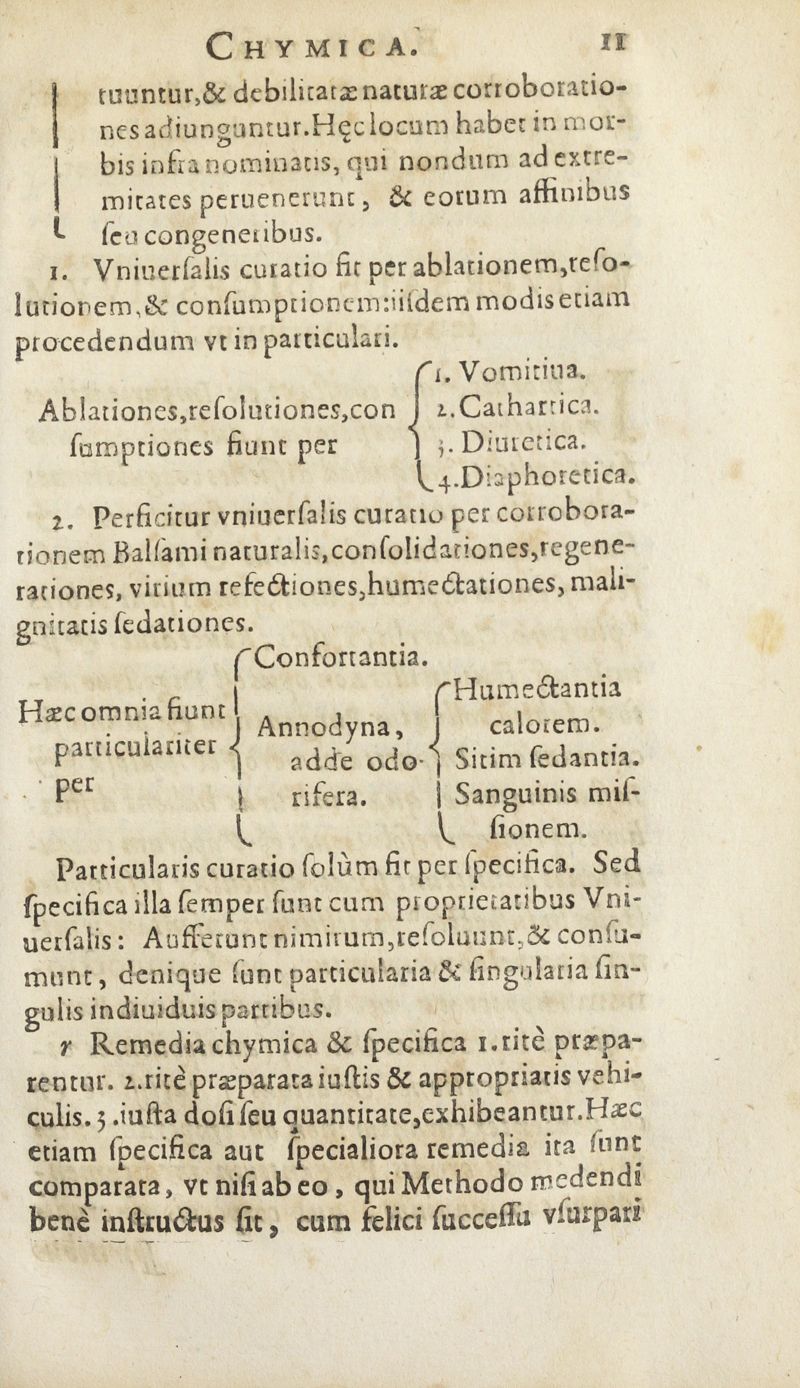 CHYMICA. 11
tuuntur,& debilitatæ naturæ corroboratio-
nes adiunguntur. Hęc locum habet in mor-
bis infra nominatis, qui nondum ad extre-
mitates peruenerunt, & eorum affinibus
ſeu congeneribus.
1. Vniuerſalis curatio fit per ablationem,reſo-
lutionem,& conſumptionem:iiſdem modis etiam
procedendum vt in particulari.
1. Vomitiua.
Ablationes,reſolutiones,con 2.Cathartica.
ſumptiones fiunt per 3. Diuretica.
4.Diaphoretica.
2. Perficitur vniuerſalis curatio per corrobora-
tionem Balſami naturalis,conſolidationes,regene-
rationes, virium refectiones,humectationes, mali-
gnitatis ſedationes.
Confortantia.
Humectantia
Hæc omnia fiunt
Annodyna, calorem.
particulariter
adde odo- Sitim ſedantia.
per rifera. Sanguinis miſ-
ſionem.
Particularis curatio ſolùm fit per ſpecifica. Sed
ſpecifica illa ſemper ſunt cum proprietatibus Vni-
uerſalis: Aufferunt nimirum,reſoluunt,& conſu-
munt, denique ſunt particularia & ſingularia ſin-
gulis indiuiduis partibus.
r Remedia chymica & ſpecifica 1.ritè præpa-
rentur. 2.ritè præparata iuſtis & appropriatis vehi-
culis. 3 .iuſta doſi ſeu quantitate,exhibeantur.Hæc
etiam ſpecifica aut ſpecialiora remedia ita ſunt
comparata, vt niſi ab eo, qui Methodo medendi
benè inſtructus ſit, cum felici ſucceſſu vſurpari